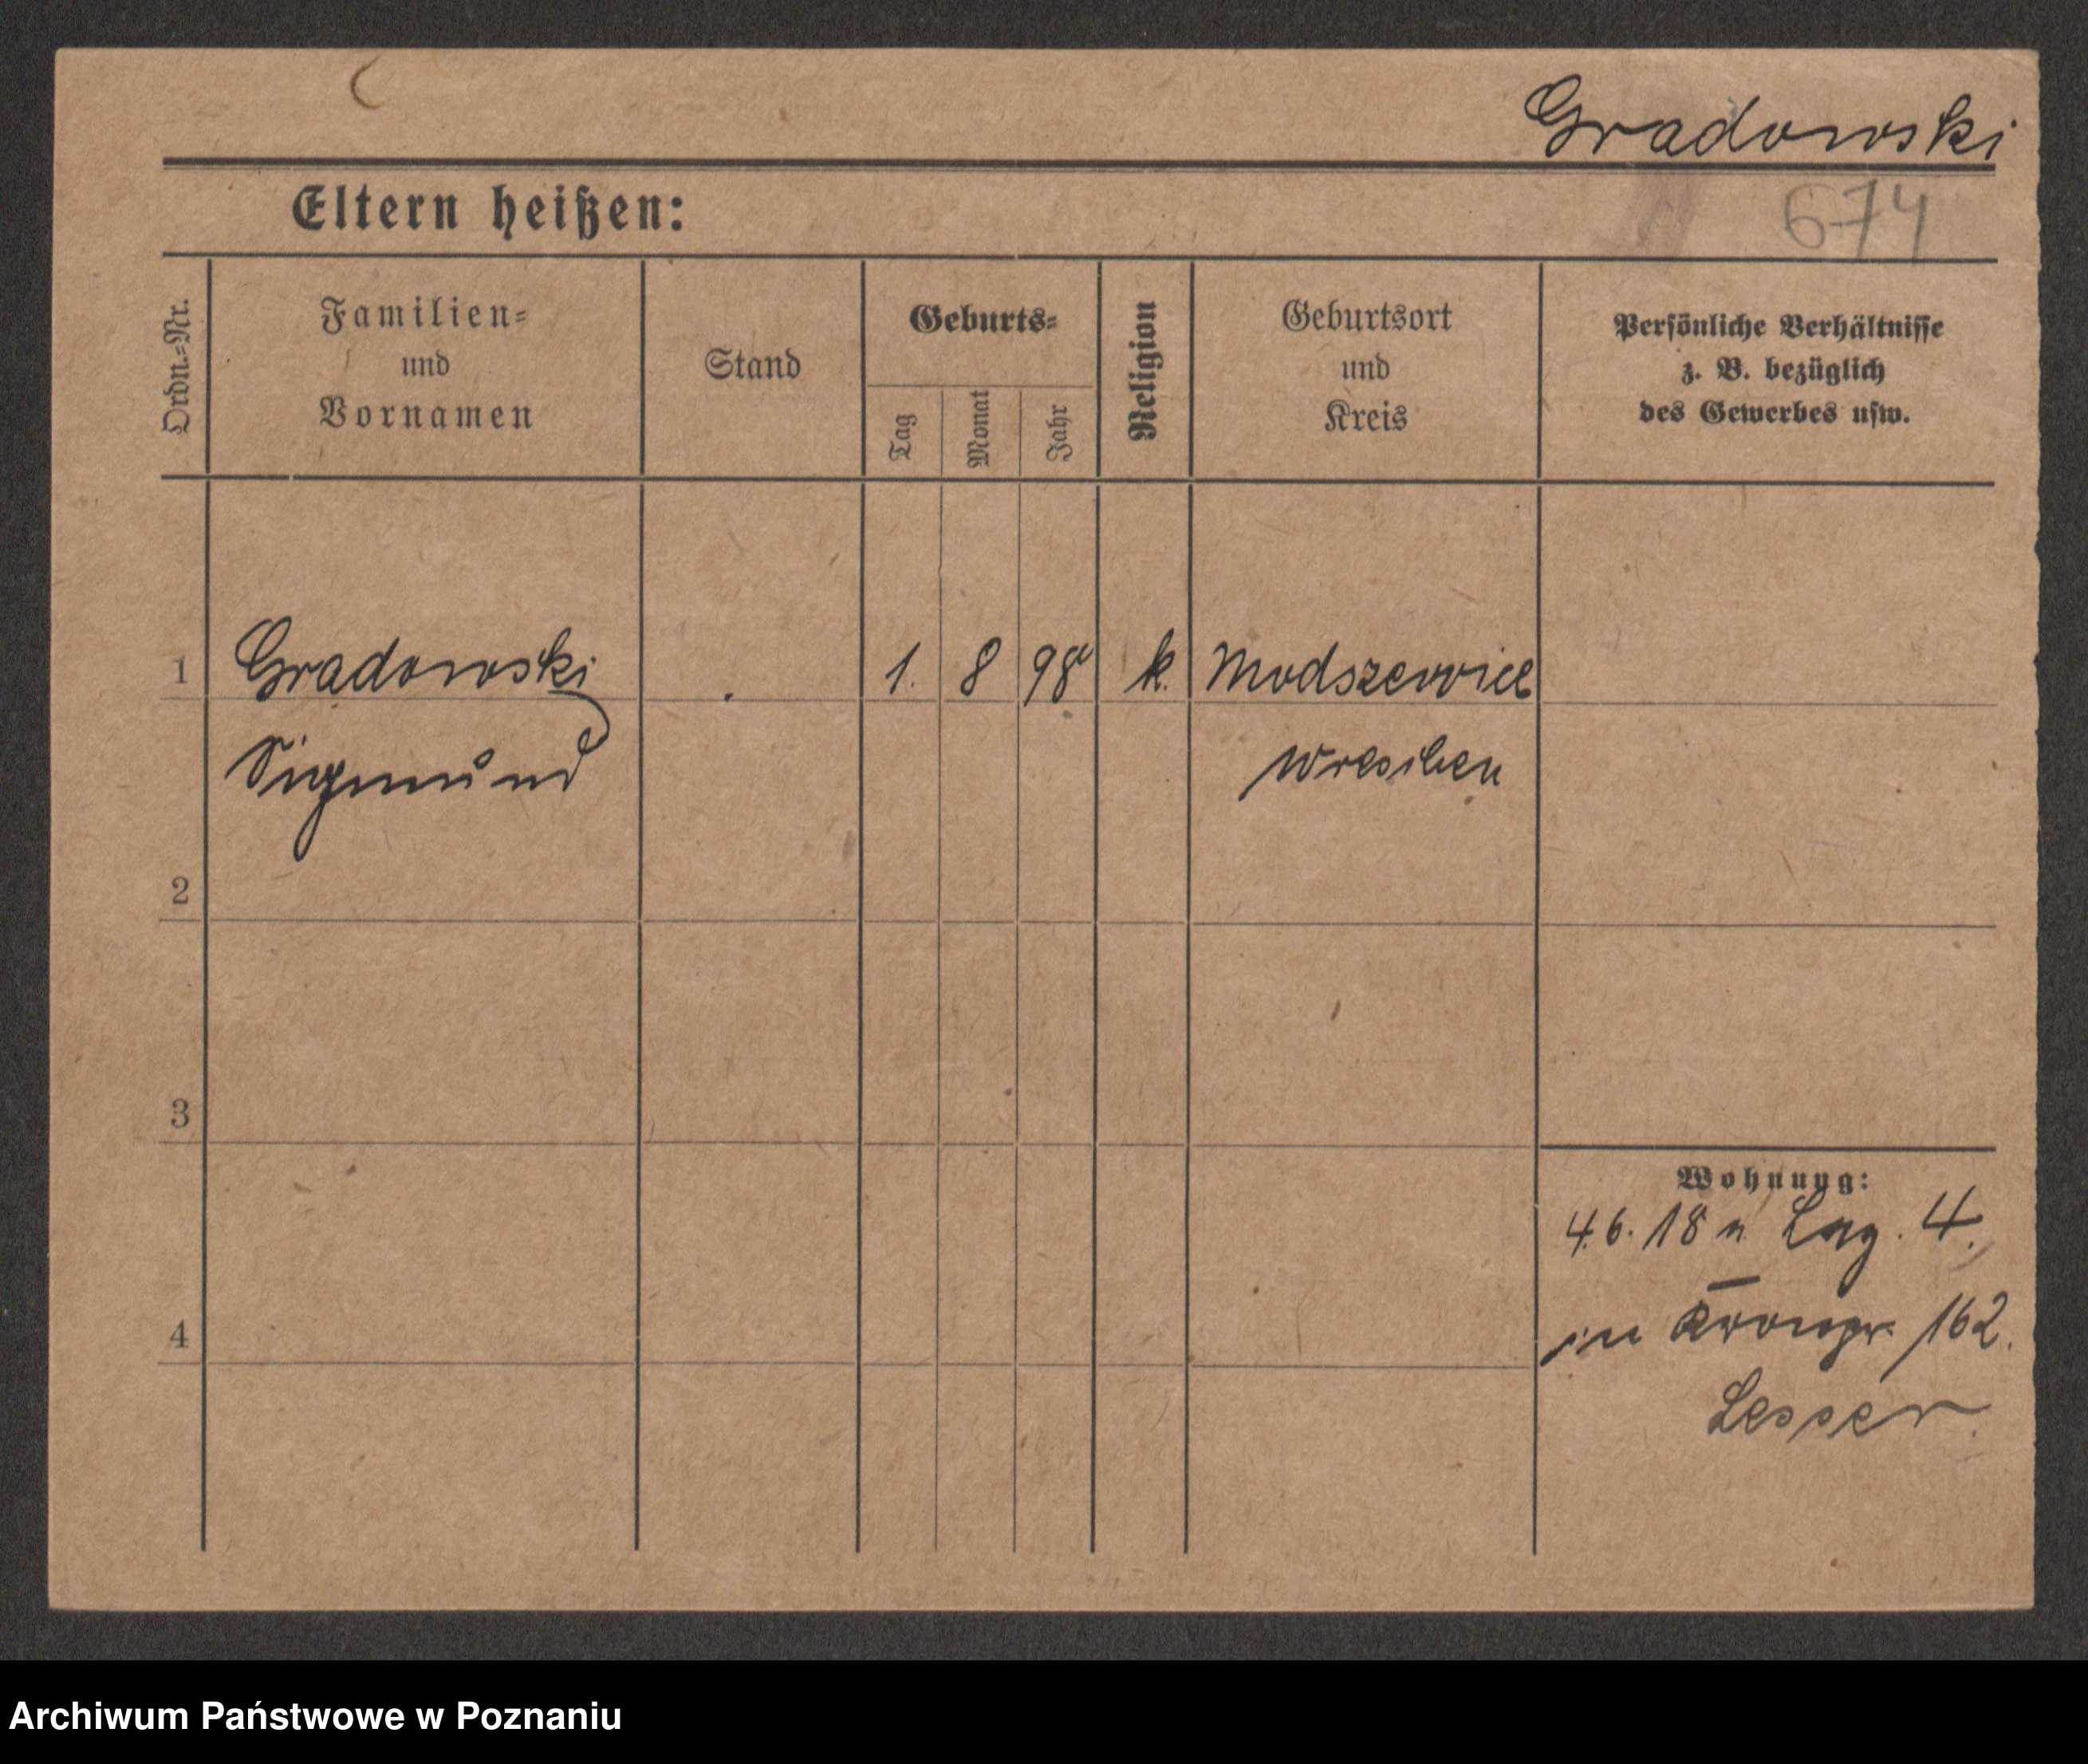 Gradowski
Eltern heißen:
674
Ordn.-Nr.
Familien-
und
Vornamen
Stand
Geburts-
Tag
Monat
Jahr
Religion
Geburtsort
und
Kreis
Persönliche Verhältnisse
z. B. bezüglich
des Gewerbes usw.
1
Gradowski
1. 8 98
k.
Sigmund
Wreschen
2
3
4
Wohnung:
4.6.18 n. 4.
in 162.
Lesser
Archiwum Państwowe w Poznaniu